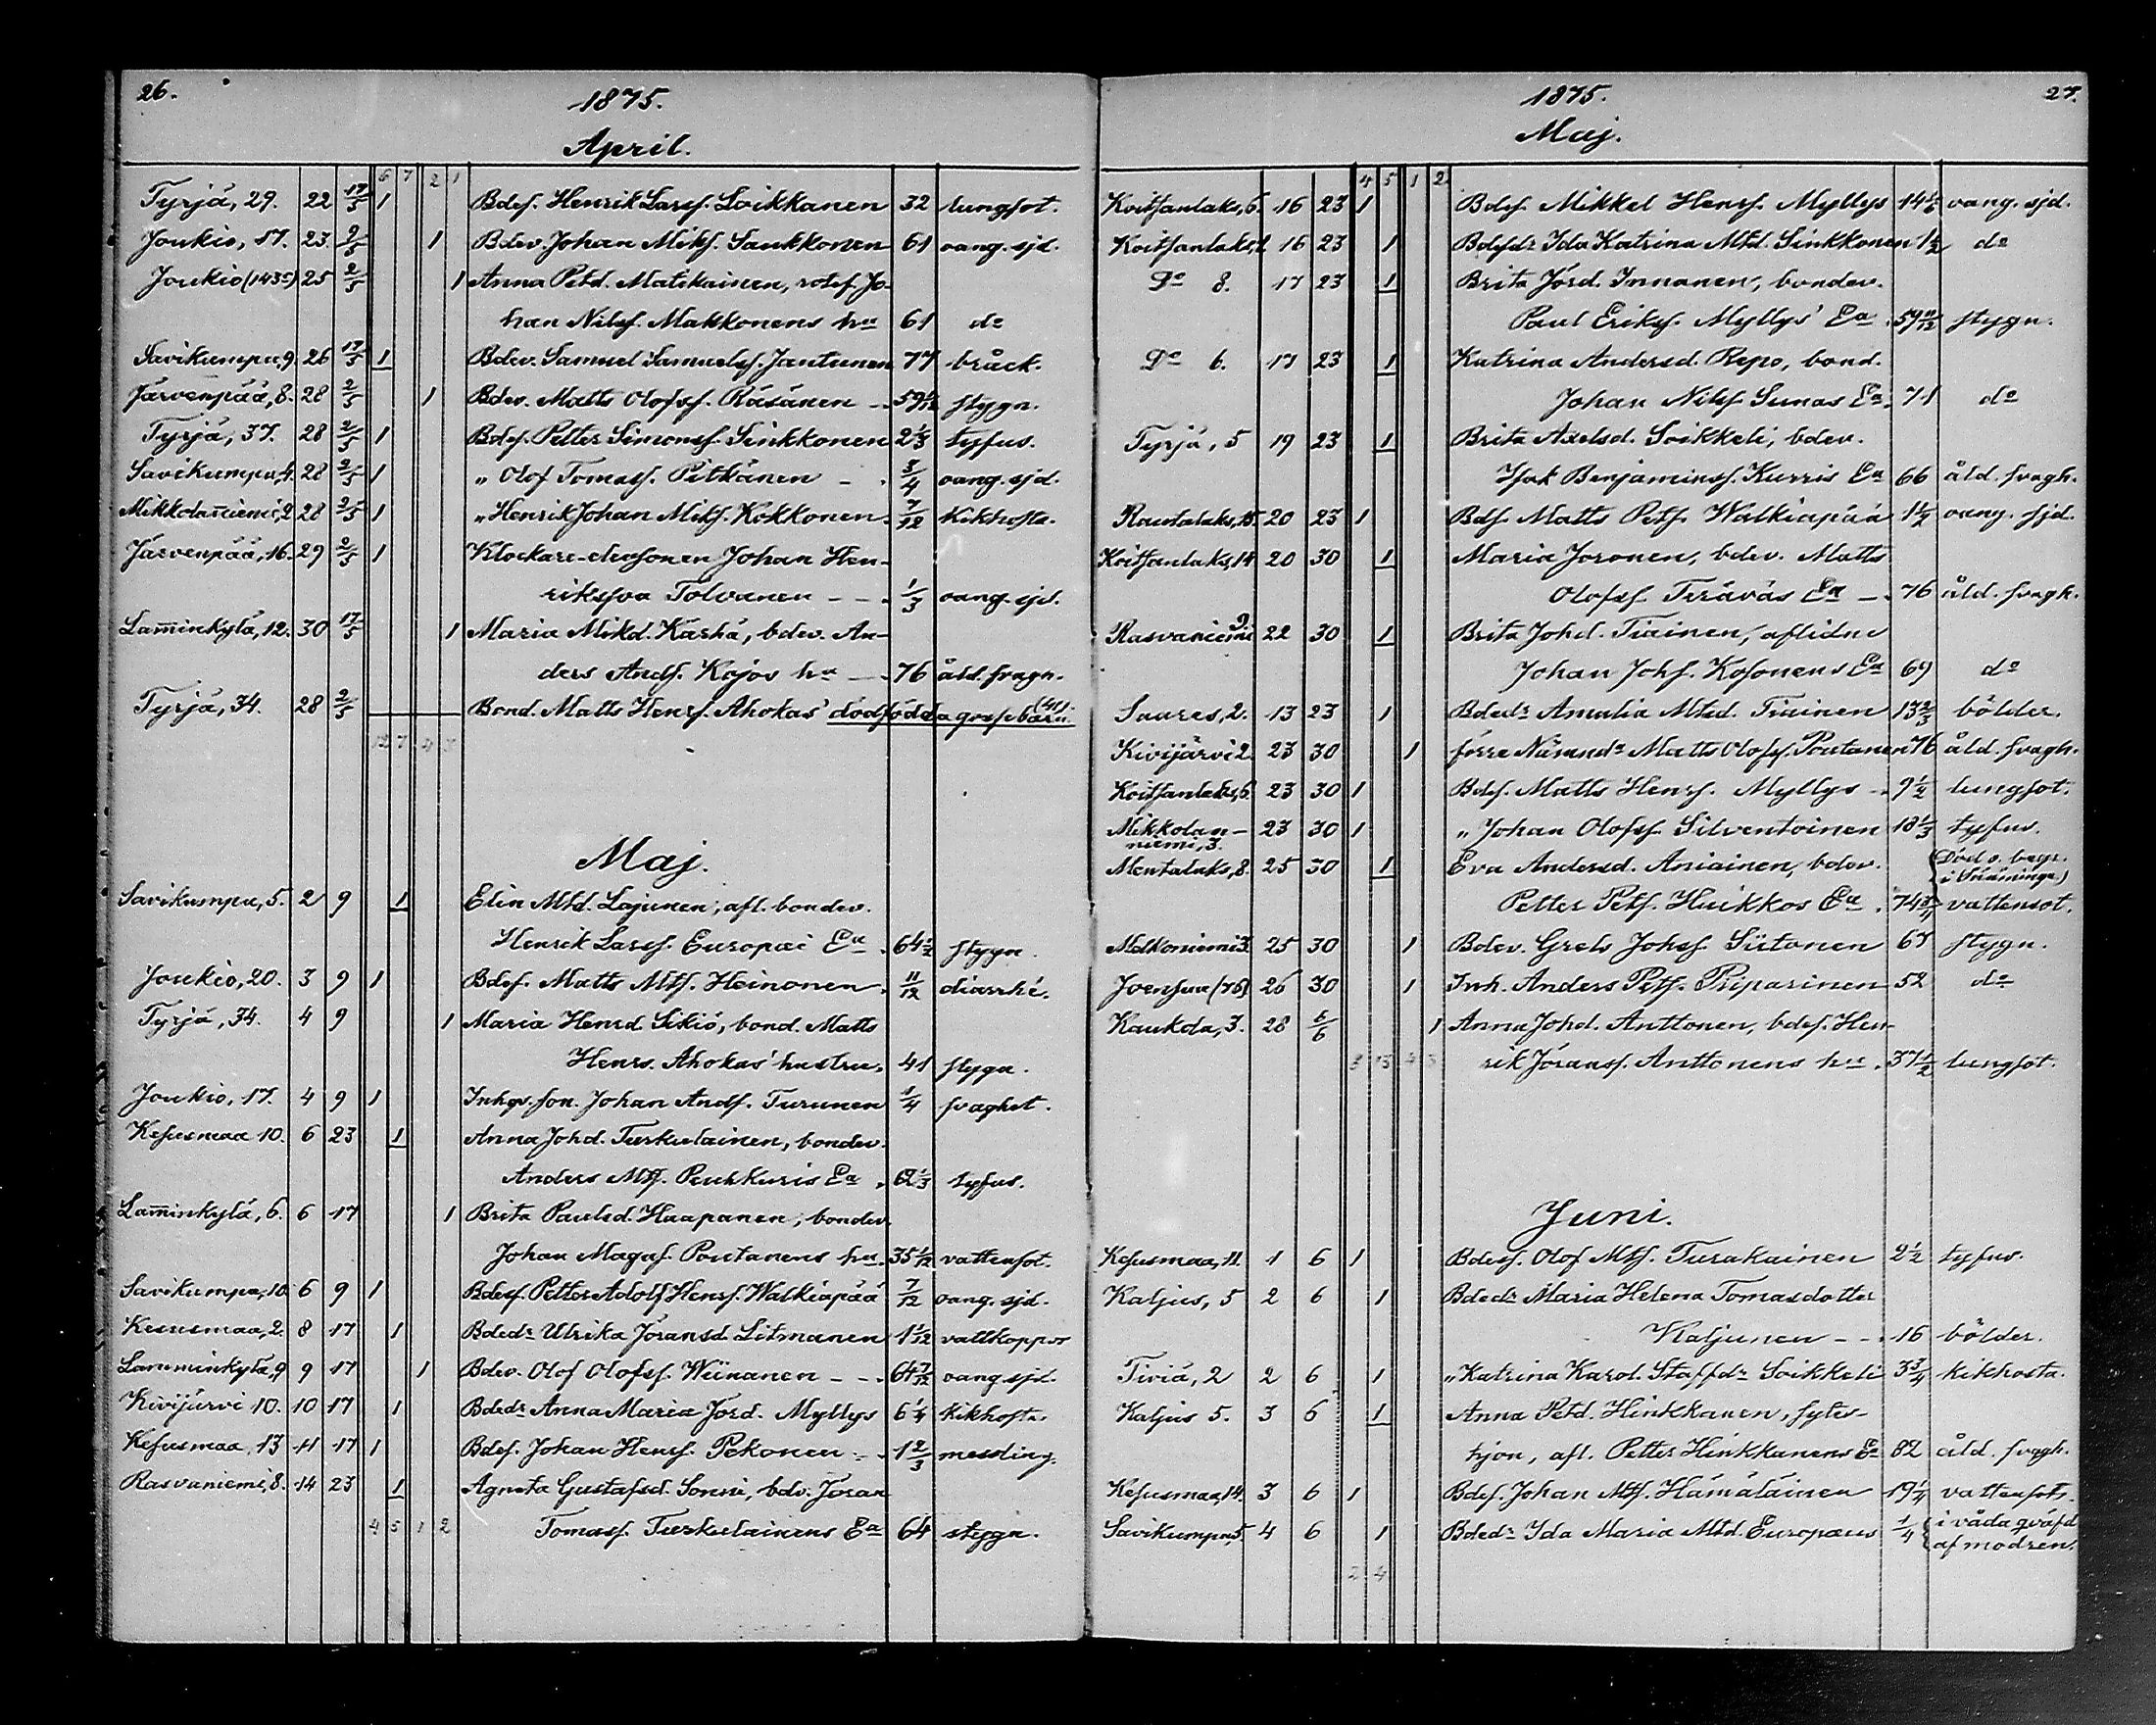 26.
1875.
April.
6 7 2 1
Tyrjä, 29. 22 17/5 1 Bdes. Henrik Larsf. Loikkanen 32 lungsot.
Joukio, 17. 23. 9/5 1 Bdev. Johan Miksf. Saukkonen 61 oang. sjd.
Joukio (1435) 25 2/5 1 Anna Petd. Matikainen, rotef. Jo-
han Nilsf. Makkonens hu 61 do
Savikumpu, 9. 26 17/5 1 Bdev. Samuel Samuelsf. Jantunen 77 bråck.
Järvenpää, 8. 28 2/5 1 Bdev. Matts Olofsf. Räsänen - 59 1/12 stygn.
Tyrjä, 37. 28 2/5 1 Bdes. Petter Simonsf. Sinkkonen 2 1/3 tyfus.
Savikumpu, 4. 28 2/5 1 " Olof Tomasf. Pitkänen - 3/4 oang. sjd.
Mikkolanniemi, 2 28 2/5 1 " Henrik Johan Miksf. Kokkonen 7/12 kikhosta.
Järvenpää, 16. 29 2/5 1 Klockare-elevsonen Johan Hen-
riksson Tolvanen - - 1/3 oang. sjd.
Laminkylä, 12. 30 17/5 1 Maria Mikd. Karhä, bdev. An-
ders Andf. Kojos hu - 76 åld. svagh.
Tyrjä, 34. 28 2/5 Bond. Matts Henrsf. Ahokas' dödfödda gossebarn. (41)
12 7 4 3
Maj.
Savikumpu, 5. 2 9 1 Elin Mtd. Lajunen, afl. bondev.
Henrik Larsf. Europæi Ea 64 1/2 stygn.
Joukio, 20. 3 9 1 Bdes. Matts Mtsf. Heinonen 11/12 diarrhé.
Tyrjä, 34. 4 9 1 Maria Henrd. Sikiö, bond. Matts
Henrs. Ahokas' hustru 41 stygn.
Joukio, 17. 4 9 1 Inhgs. son. Johan Andf. Turunen 1/4 svaghet.
Kesusmaa 10. 6 23 1 Anna Johd. Turkulainen, bondev.
Anders Mtf. Peuhkuris Ea 62 1/3 tyfus.
Laminkylä, 6. 6 17 1 Brita Paulsd. Haapanen, bondev.
Johan Magnsf. Poutanens hu 35 1/12 vattensot.
Savikumpu, 10. 6 9 1 Bdes. Petter Adolf Hensf. Walkiapää 7/12 oang. sjd.
Kesusmaa, 2. 8 17 1 Bdedr Ulrika Jöransd. Litmanen 1 1/12 vattkoppor
Lamminkylä, 9 9 17 1 Bdev. Olof Olofsf. Wiinanen - - 64 7/12 oang. sjd.
Kivijärvi 10. 10 17 1 Bdedr Anna Maria Jörd. Myllys 6 1/4 kikhosta.
Kesusmaa, 13 11 17 1 Bdes. Johan Hensf. Pekonen - 1 2/3 messling.
Rasvaniemi, 8. 14 23 1 Agneta Gustafsd. Sonni, bdv. Jöran
Tomasf. Turkulainens Ea 64 stygn.
4 5 1 2
27.
1875.
Maj.
4 5 1 2
Koitsanlaks, 6. 16 23 1 Bdes. Mikkel Henrsf. Myllys 14 1/6 oang. sjd.
Koitsanlaks, 2 16 23 1 Bdesdr Ida Katrina Mtd. Sinkkonen 1 1/2 do
Do 8. 17 23 1 Brita Jörd. Innanen, bondev.
Paul Eriksf. Myllys' Ea 59 11/12 stygn.
Do 6. 17 23 1 Katrina Andersd. Repo, bond.
Johan Nilsf. Sunas Ea 71 do
Tyrjä, 5 19 23 1 Brita Axelsd. Soikkeli, bdev.
Isak Benjaminsf. Kurris Ea 66 åld. svagh.
Rautalaks, 15. 20 23 1 Bdf. Matts Petf. Walkiapää 1 1/2 oang. sjd.
Koitsanlaks, 14 20 30 1 Maria Joronen, bdev. Matts
Olofsf. Teräväs Ea - 76 åld. svagh.
Rasvaniemi 9. 22 30 1 Brita Johd. Tiainen, aflidne
Johan Johsf. Kosonens Ea 69 do
Saares, 2. 13 23 1 Bdedr Amalia Mtd. Tiainen 13 2/3 bölder.
Kivijärvi 2. 23 30 1 förre Nämnd. Matts Olofsf. Poutanen 76 åld. svagh.
Koitsanlaks, 6. 23 30 1 Bdes. Matts Henrsf. Myllys - 9 1/2 lungsot.
Mikkolan-
niemi, 3. 23 30 1 " Johan Olofsf. Silventoinen 18 1/3 tyfus.
Mentalaks, 8. 25 30 1 Eva Andersd. Aniainen, bdev. (Död o. begr. i Sräminge.)
Petter Petf. Huikkos Ea 74 3/4 vattensot.
Melkoniemi 3. 25 30 1 Bdev. Grels Johsf. Siitonen 67 stygn.
Joensuu (76) 26 30 1 Inh. Anders Petf. Piiparinen 52 do
Kaukola, 3. 28 6/6 1 Anna Johd. Anttonen, bdes. Hen-
rik Jöransf. Anttonens hu 37 1/2 lungsot.
Juni.
Kesusmaa, 11. 1 6 1 Bdesf. Olof Mtsf. Turakainen 2 1/2 tyfus.
Kaljus, 5 2 6 1 Bdedr Maria Helena Tomasdotter
Kaljunen - - 16 bölder.
Tiviä, 2 2 6 1 " Katrina Karol. Staffdr Soikkeli 3 3/4 kikhosta.
Kaljus 5. 3 6 1 Anna Petd. Hinkkanen, sytes-
hjon, afl. Petter Hinkkanens Ea 82 åld. svagh.
Kesusmaa, 14. 3 6 1 Bdes. Johan Mtf. Hämäläinen 19 1/4 vattensot.
Savikumpu, 5 4 6 1 Bdedr Ida Maria Mtd. Europæus 1/4 i våda qväfd
af modren.
2 4